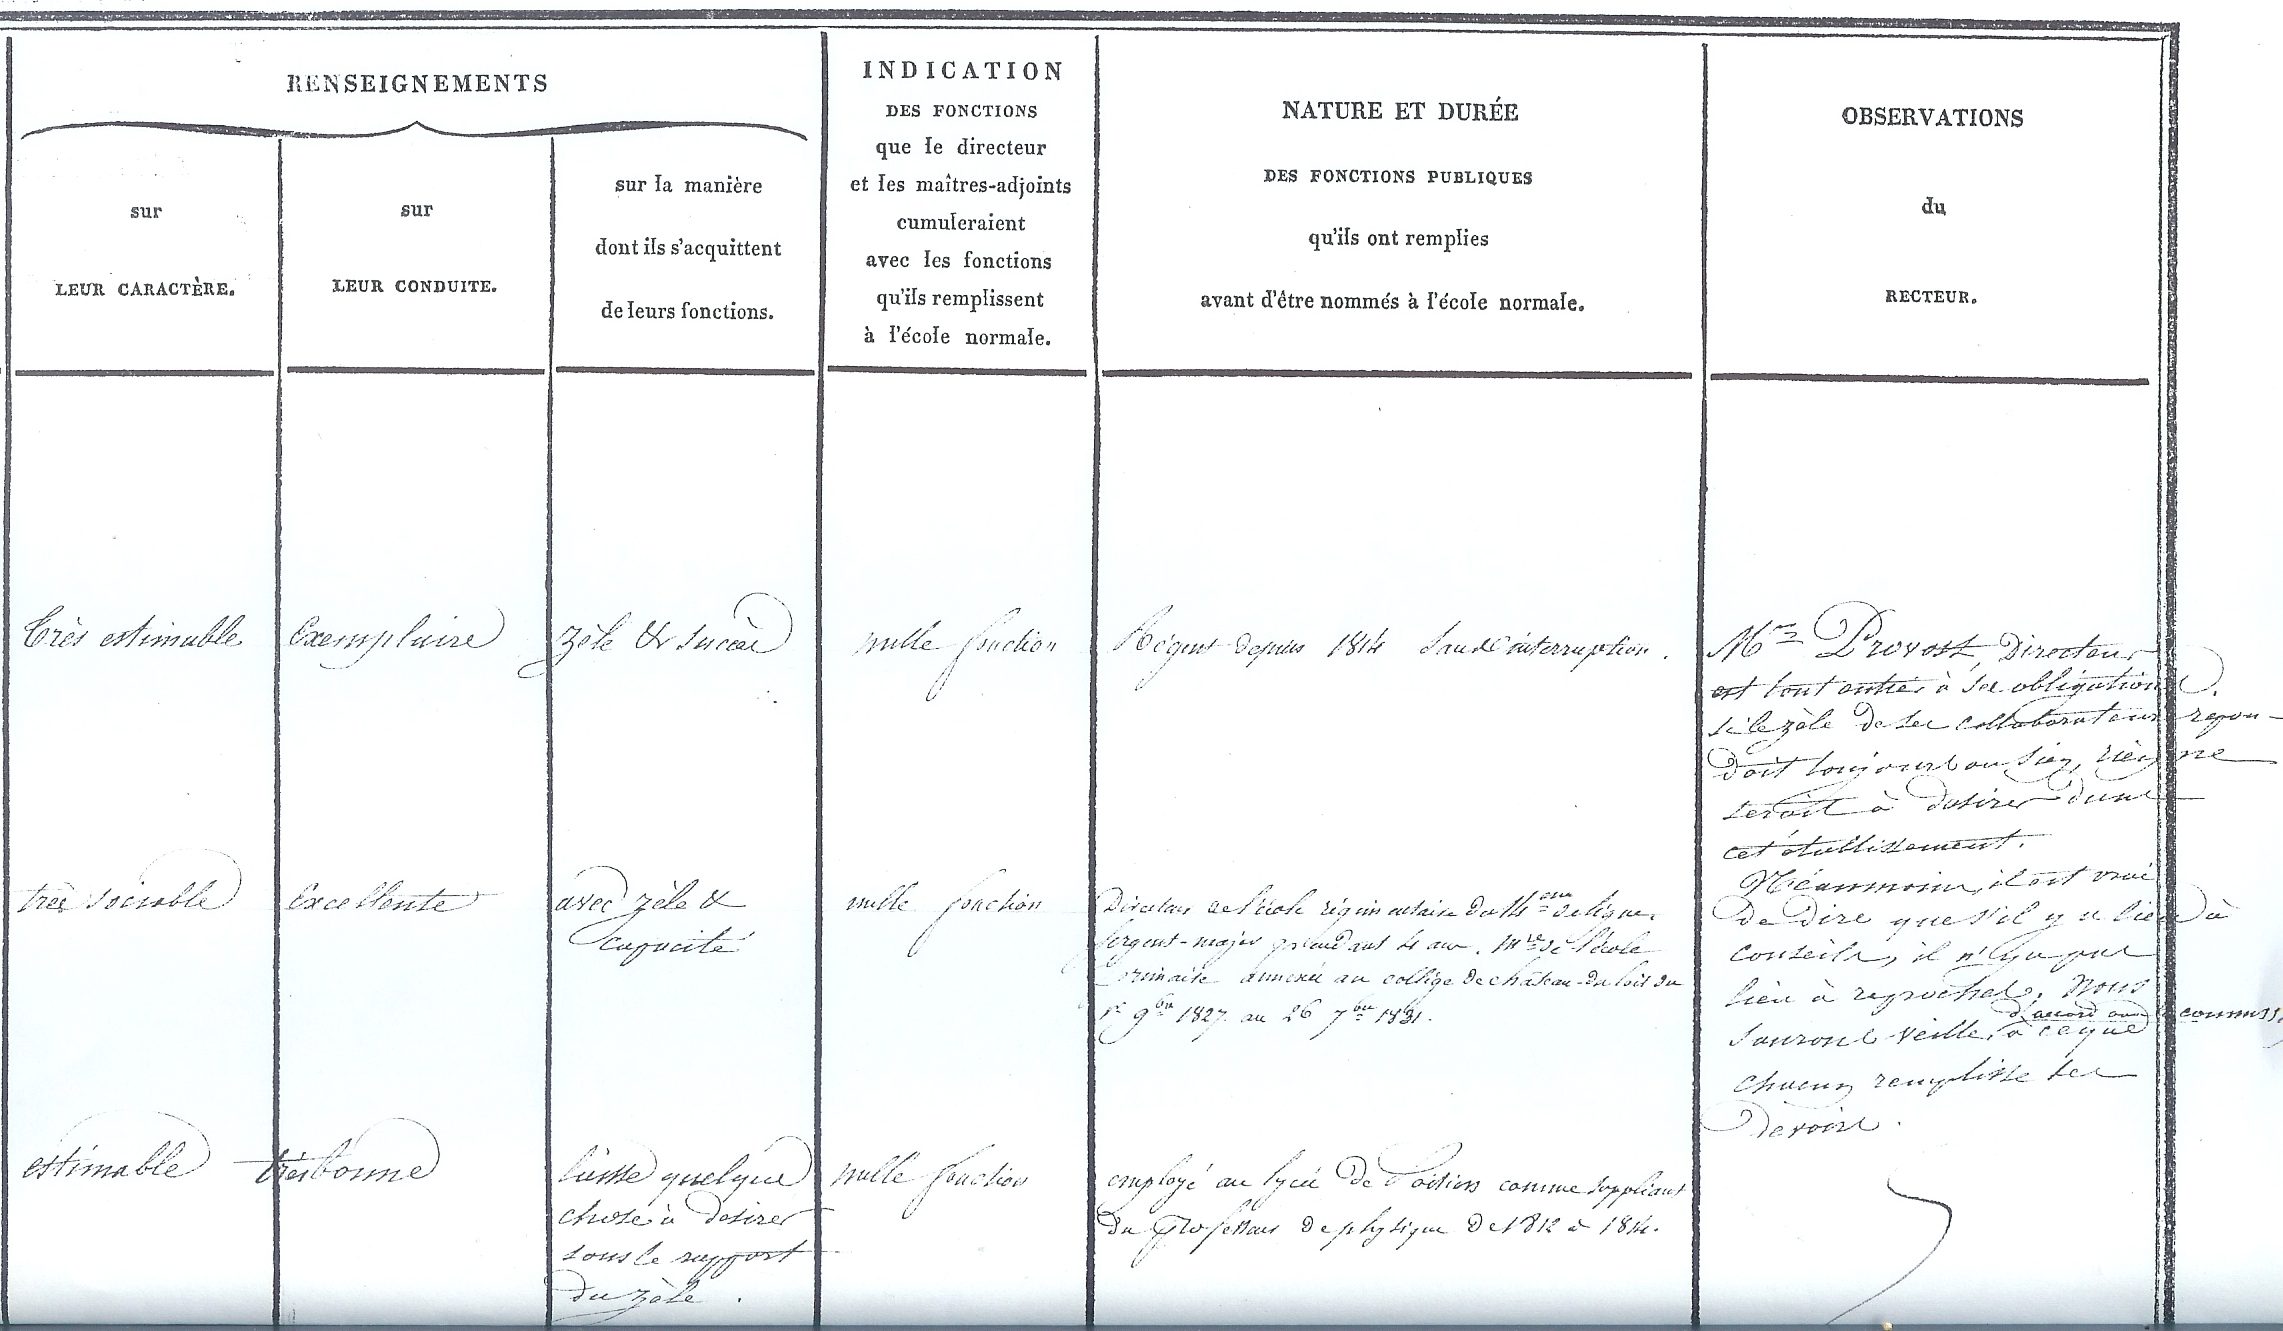 RENSEIGNEMENTS
sur
LEUR CARACTÈRE.
sur
LEUR CONDUITE.
sur la manière
dont ils s'acquittent
de leurs fonctions.
INDICATION
DES FONCTIONS
que le directeur
et les maîtres-adjoints
cumuleraient
avec les fonctions
qu'ils remplissent
à l'école normale.
NATURE ET DURÉE
DES FONCTIONS PUBLIQUES
qu'ils ont remplies
avant d'être nommés à l'école normale.
OBSERVATIONS
du
RECTEUR.
très estimable
Exemplaire
zèle & succès
nulle fonction
Régent depuis 1814 sans interruption.
très sociable
Excellente
avec zèle &
capacité
nulle fonction
Directeur de l'école régimentaire du 14eme de ligne.
Sergent-major pendant 4 ans. Mre de l'école
primaire annexée au collège de château-du-loir du
1er 9bre 1827 au 26 7bre 1831.
estimable
très bonne
laisse quelque
chose à desirer
sous le rapport
du zèle.
nulle fonction
employé au lycée de Poitiers comme suppléant
du Professeur de physique de 1812 à 1814.
Mr Provost, Directeur
est tout entier à ses obligations.
si le zèle de ses collaborateurs repon-
doit toujours au sien, rien ne
seroit à desirer dans
cet établissement.
Néanmoins, il est vrai
de dire que s'il y a lieu à
conseils, il n'y a pas
lieu à reproches. Nous
d'accord avec
saurons veiller à ce que
chacun remplisse ses
devoirs.